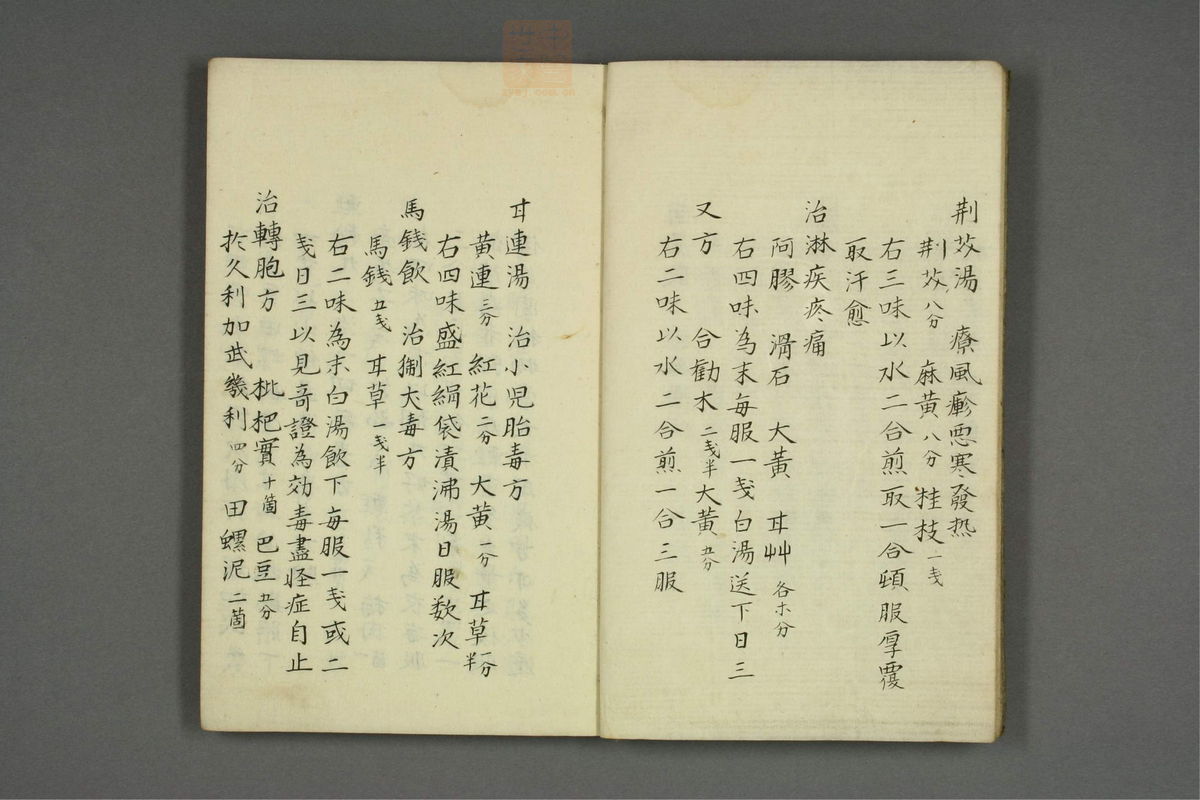 荆芥湯　療風癒惡寒發热
荆芥八分　麻黄八分　桂枝一戔
右三味以水二合煎取一合頓服厚覆
取汗愈
治淋疾疼痛
阿膠　滑石　大黄　甘艸各等分
右四味為末每服一戔白湯送下日三
又方　合勸木二戔半大黄五分
右二味以水二合煎一合三服
甘連湯　治小児胎毒方
黄連三分　紅花二分　大黄一分　甘草一分半
右四味盛紅絹袋漬沸湯日服数次
馬錢飲　治猘犬毒方
馬錢五戔　甘草一戔半
右二味為末白湯飲下每服一戔或二
戔日三以見奇證為効毒盡怪症自止
治轉胞方　枇杷實十箇　巴豆五分
於久利加武幾利四分　田螺泥二箇